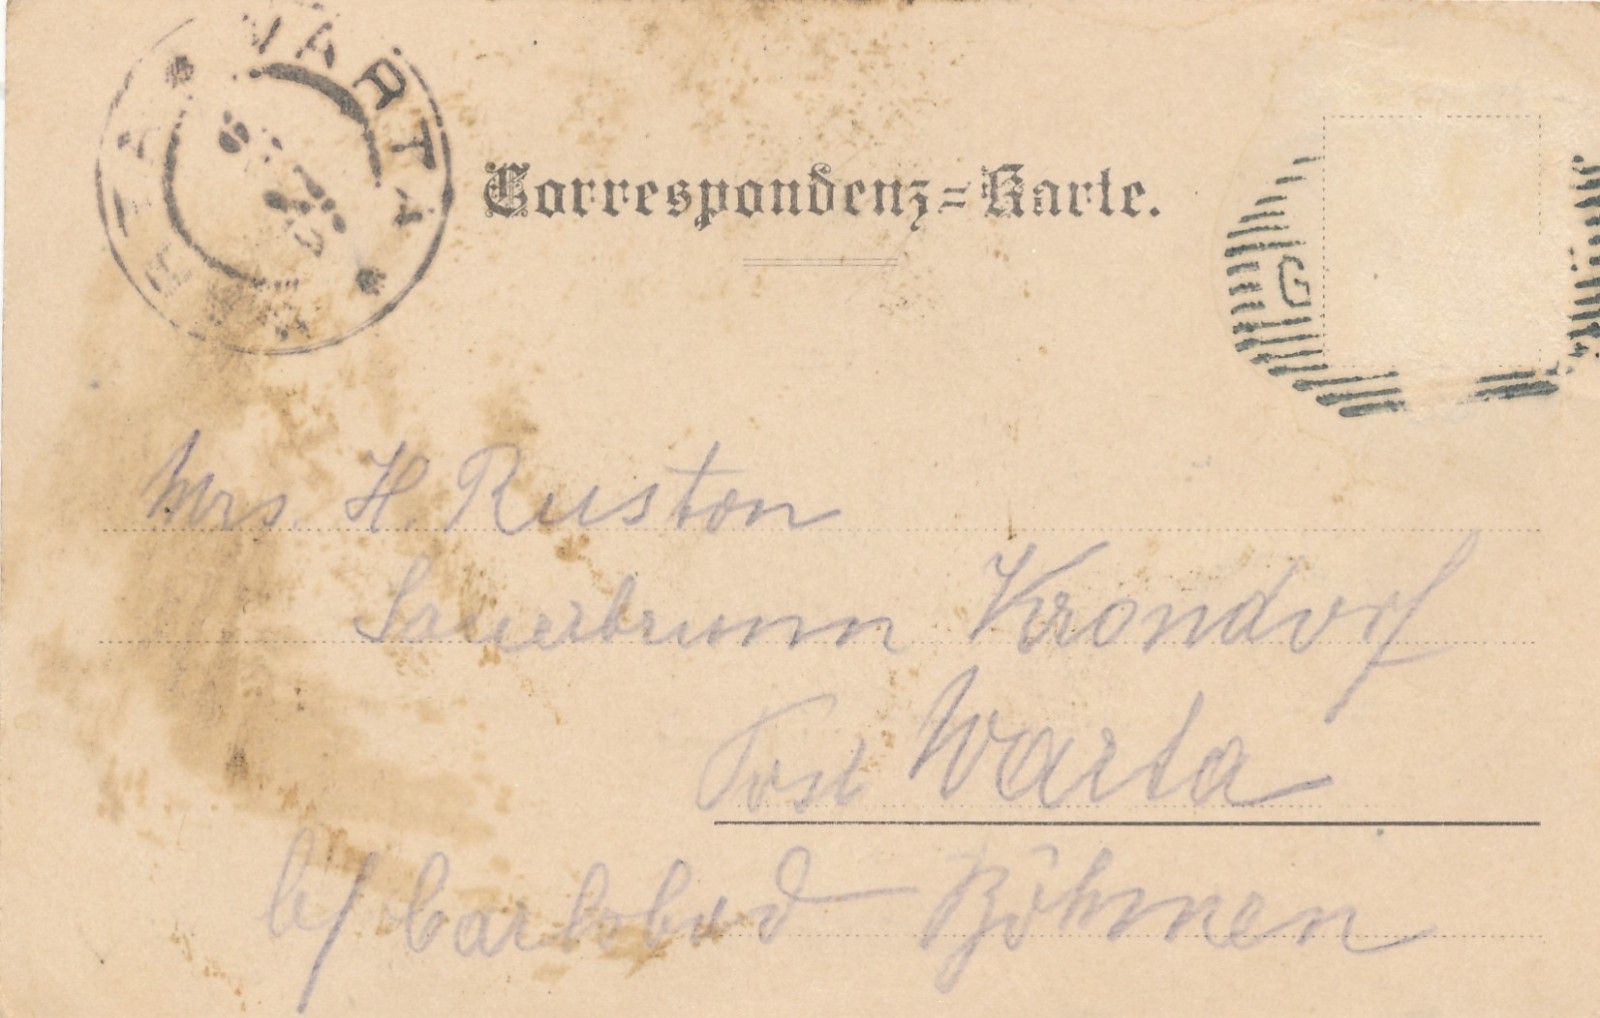 VARTA
Correspondenz=Karte.
G
Mrs. H. Ruston
Sauerbrunn Krondorf
Post Warta
b/ Carlsbad Böhmen